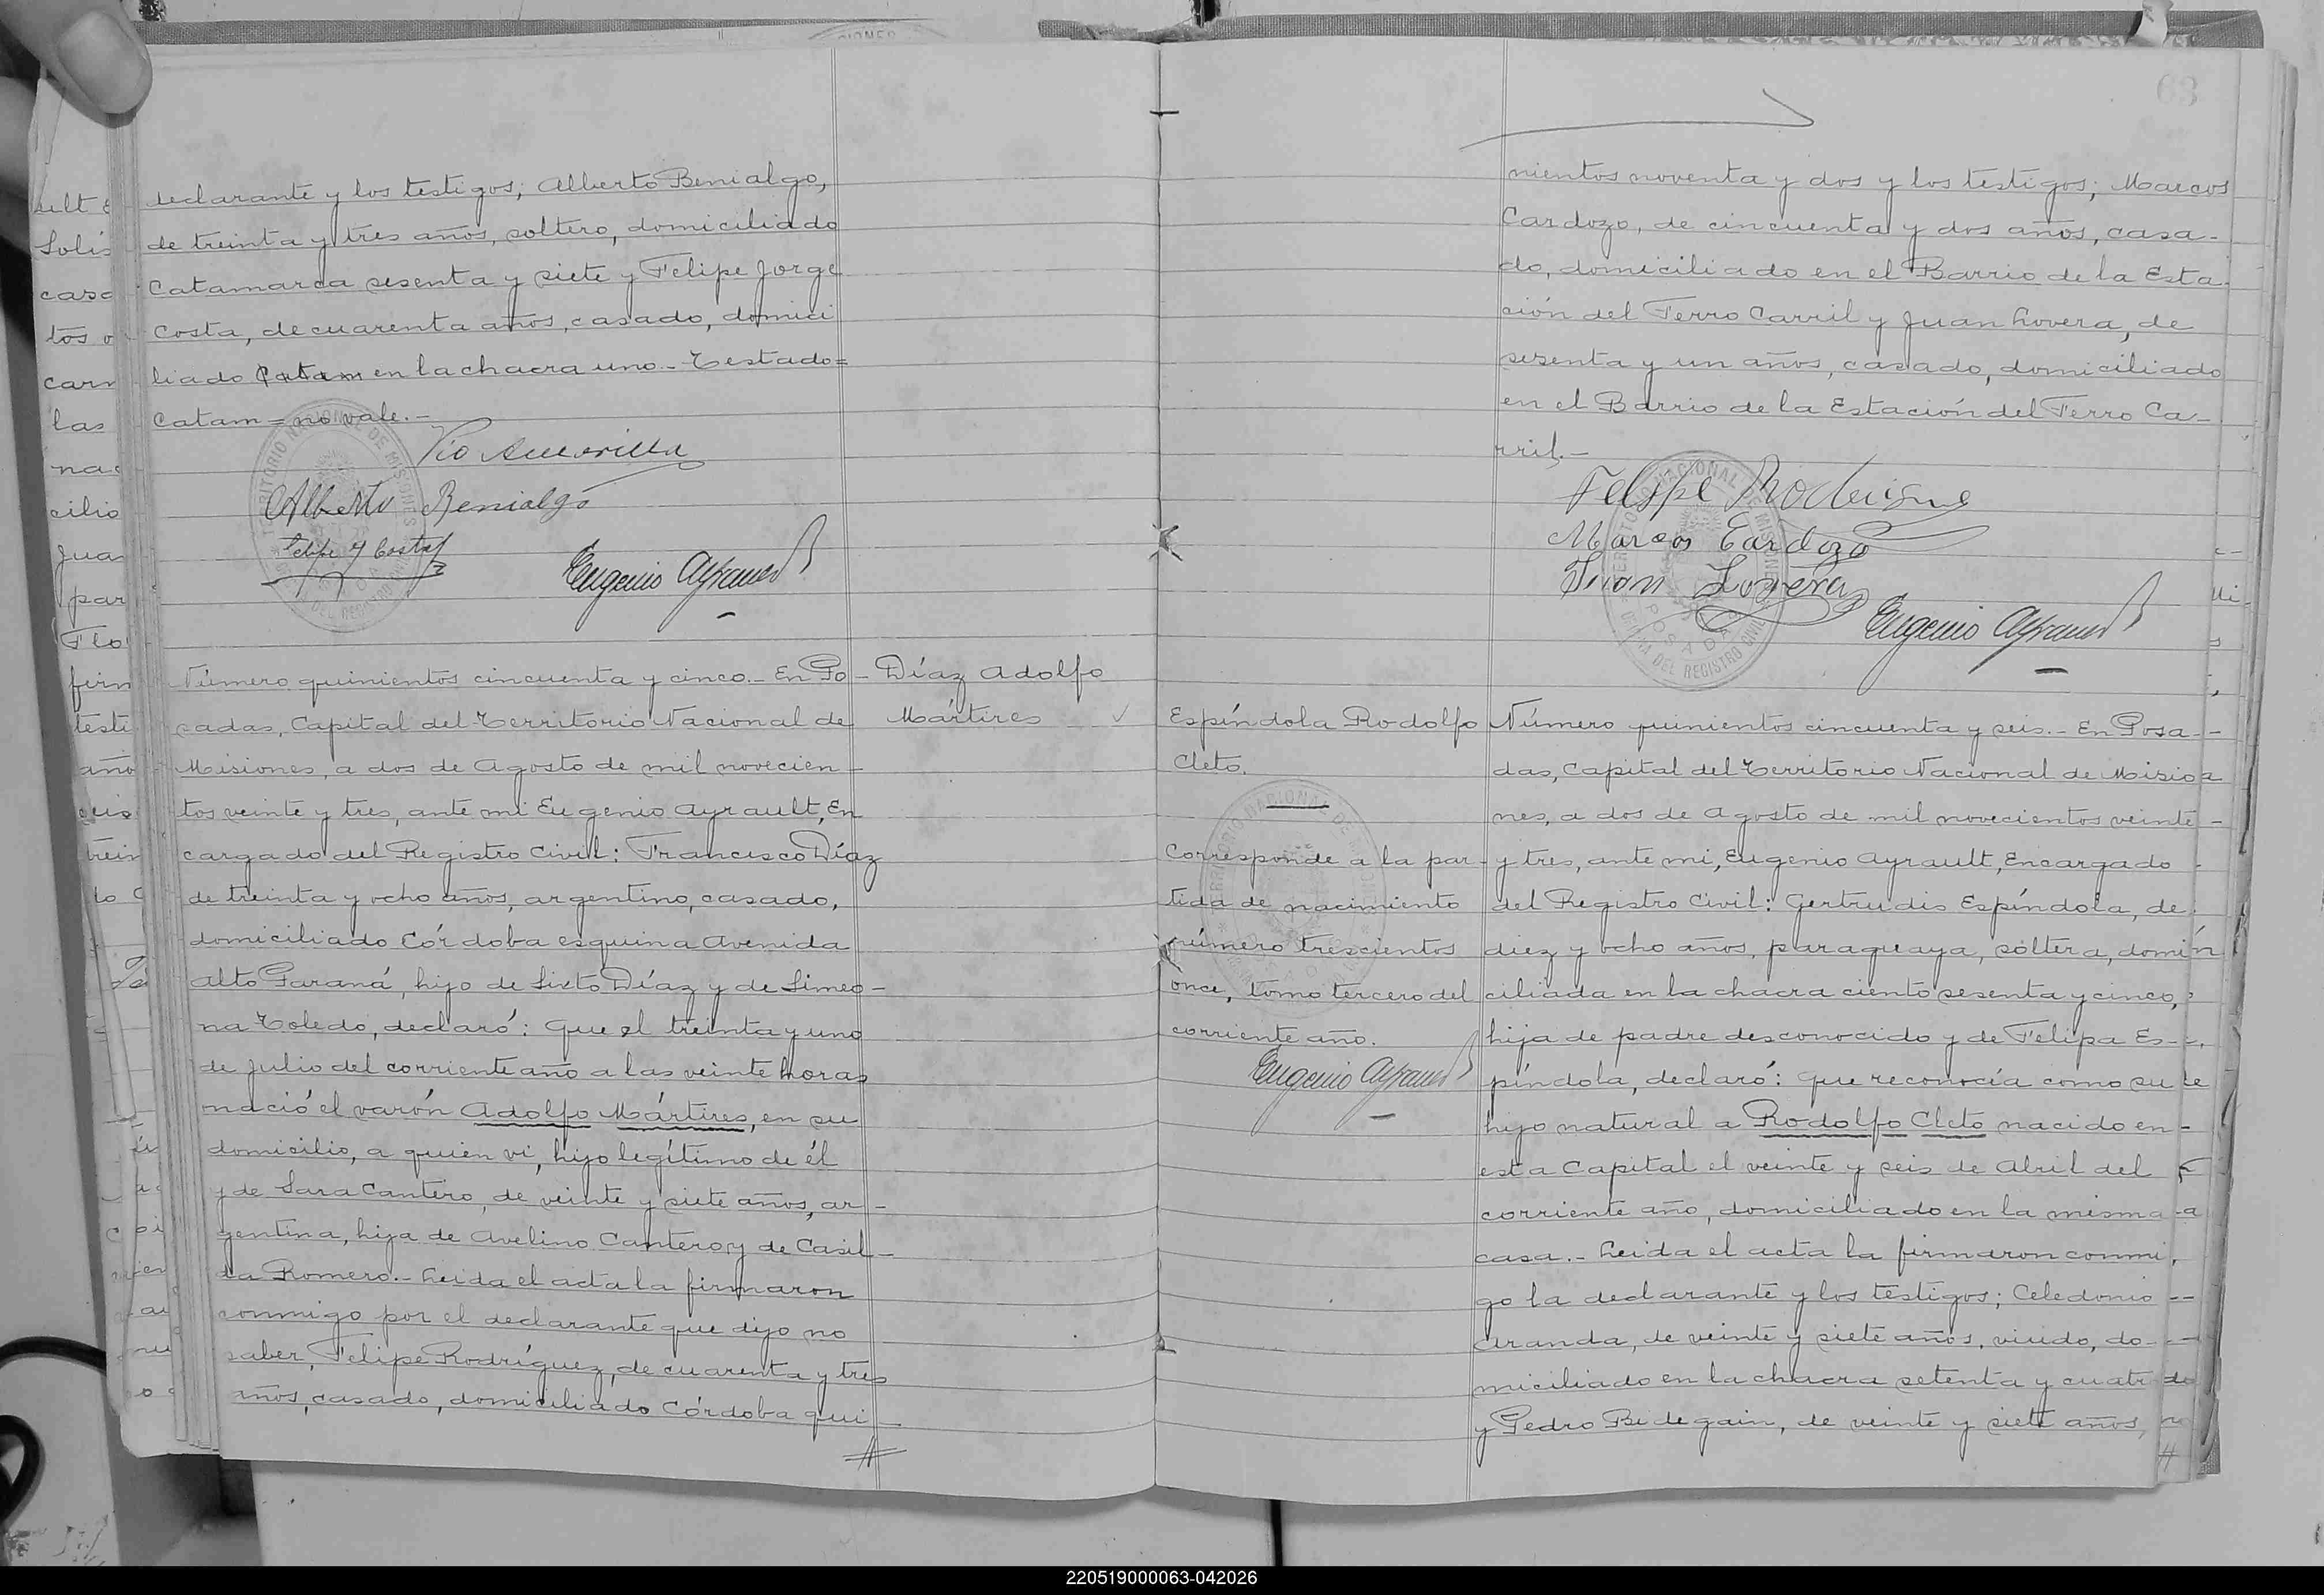 declarante y los testigos; Alberto Benialgo,
de treinta y tres años, soltero, domiciliado
Catamarca sesenta y siete y Felipe Jorge
Costa, de cuarenta años, casado, domici
liado Catam en la chacra uno.- Testado=
Catam = no vale.-
Alberto Benialgo
Felipe J Costa
Eugenio Ayrault
Número quinientos cincuenta y cinco.- En Po-
sadas, Capital del Territorio Nacional de
Misiones, a dos de Agosto de mil novecien-
tos veinte y tres, ante mi Eugenio Ayrault, En
cargado del Registro Civil: Francisco Díaz
de treinta y ocho años, argentino, casado,
domiciliado Córdoba esquina Avenida
Alto Paraná, hijo de Sixto Díaz y de Simeo-
na Toledo, declaró: Que el treinta y uno
de Julio del corriente año a las veinte horas
nació el varón Adolfo Mártires, en su
domicilio, a quien vi, hijo legítimo de él
y de Sara Cantero, de veinte y siete años, ar-
gentina, hija de Avelino Cantero y de Casil-
da Romero.- Leida el acta la firmaron
conmigo por el declarante que dijo no
saber, Felipe Rodríguez, de cuarenta y tres
años, casado, domiciliado Córdoba qui-
Díaz Adolfo
Mártires
63
nientos noventa y dos y los testigos; Marcos
Cardozo, de cincuenta y dos años, casa-
do, domiciliado en el Barrio de la Esta-
ción del Ferro Carril y Juan Lovera, de
sesenta y un años, casado, domiciliado
en el Barrio de la Estación del Ferro Ca-
rril.-
Felipe Rodrigue
Marcos Cardozo
Juan Lovera
Eugenio Ayrault
Espíndola Rodolfo
Cleto.
Corresponde a la par-
tida de nacimiento
número trescientos
once, tomo tercero del
corriente año.
Eugenio Ayrault
Número quinientos cincuenta y seis.- En Posa-
das, Capital del Territorio Nacional de Misio
nes, a dos de Agosto de mil novecientos veinte
y tres, ante mi, Eugenio Ayrault, Encargado
del Registro Civil: Gertrudis Espíndola, de
diez y ocho años, paraguaya, soltera, domi
ciliada en la chacra ciento sesenta y cinco,
hija de padre desconocido y de Felipa Es-
píndola, declaró: Que reconocía como su
hijo natural a Rodolfo Cleto nacido en
esta Capital el veinte y seis de Abril del
corriente año, domiciliado en la misma
casa.- Leida el acta la firmaron conmi
go la declarante y los testigos; Celedonio
Aranda, de veinte y siete años, viudo, do-
miciliado en la chacra setenta y cuatr
y Pedro Bidegain, de veinte y siete años,
220519000063-042026